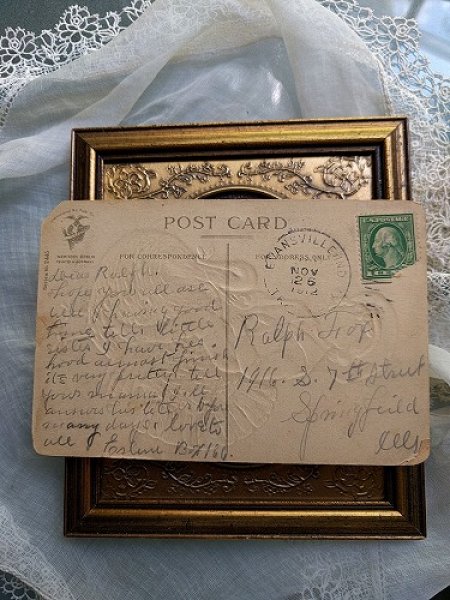 POST CARD
FOR CORRESPONDENCE
FOR ADDRESS ONLY
EVANSVILLE, IND.
NOV
25
1912
U.S. POSTAGE
Dear Ralph.
Hope you all are
well & having good
time tell little
sister I have her
hood almost finish
its very pretty tell
your mama I will
answer his letter before
many days. love to
all
Box 160.
Ralph Fox
1916. S. 7th Street
Springfield
Ills